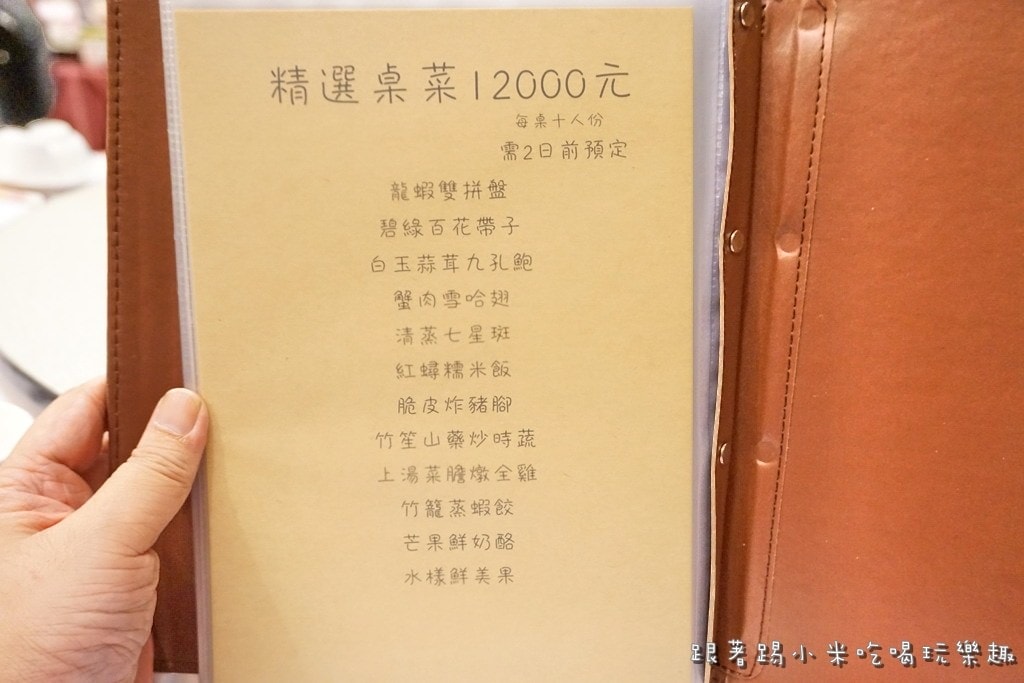 精選桌菜12000元
每桌十人份
需2日前預定
龍蝦雙拼盤
碧綠百花帶子
白玉蒜茸九孔鮑
蟹肉雪哈翅
清蒸七星斑
紅蟳糯米飯
脆皮炸豬腳
竹笙山藥炒時蔬
上湯菜膽燉全雞
竹籠蒸蝦餃
芒果鮮奶酪
水樣鮮美果
跟著踢小米吃喝玩樂趣